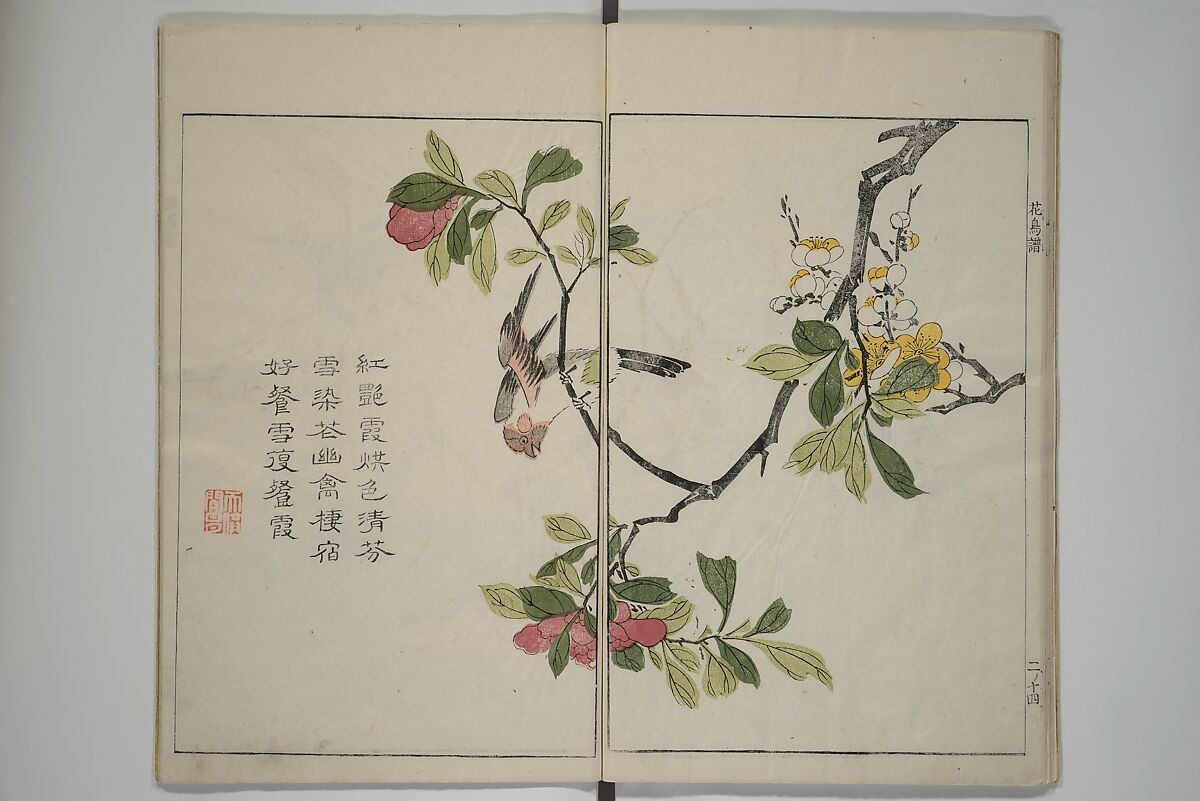 紅艷霞烘色清芬
雪染花幽禽棲宿
好餐雪復餐霞
花鳥譜
二ノ十四